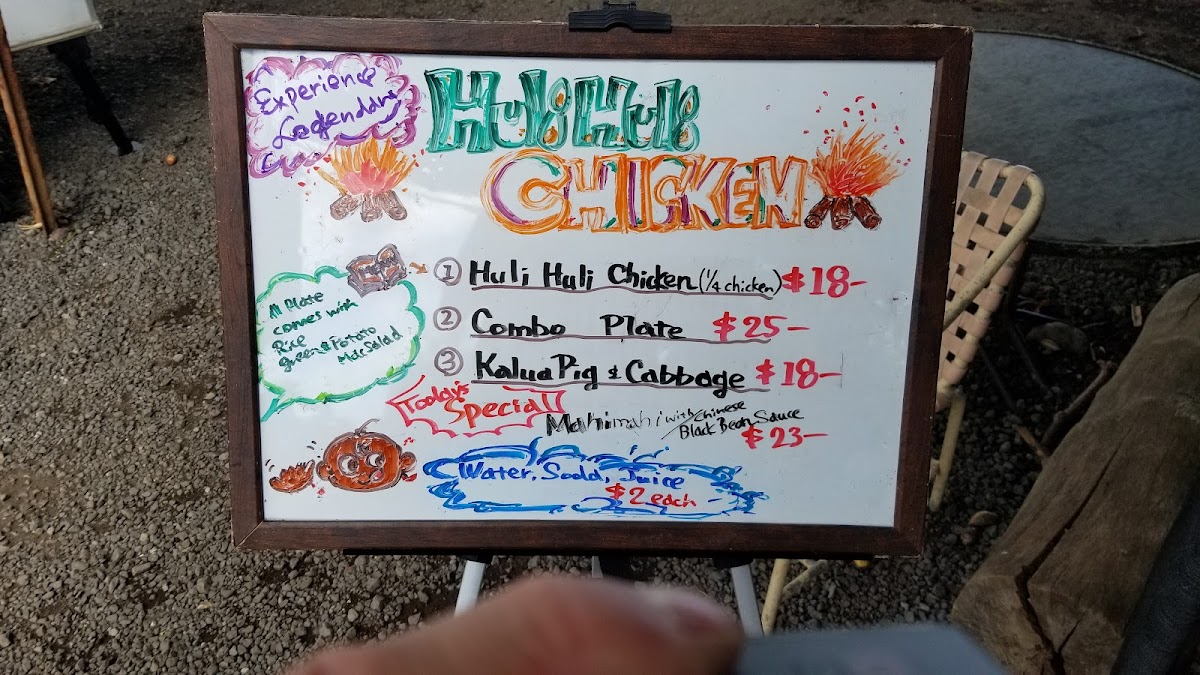 Experience
Legendary
Huli Huli
CHICKEN
① Huli Huli Chicken (1/4 chicken) $18-
② Combo Plate $25-
③ Kalua Pig & Cabbage $18-
All Plate
comes with
Rice
green & Potato
Mac Salad
Today's
Special
Mahimahi with Chinese
Black Bean Sauce
$23-
Water, Soda, Juice
$2 each